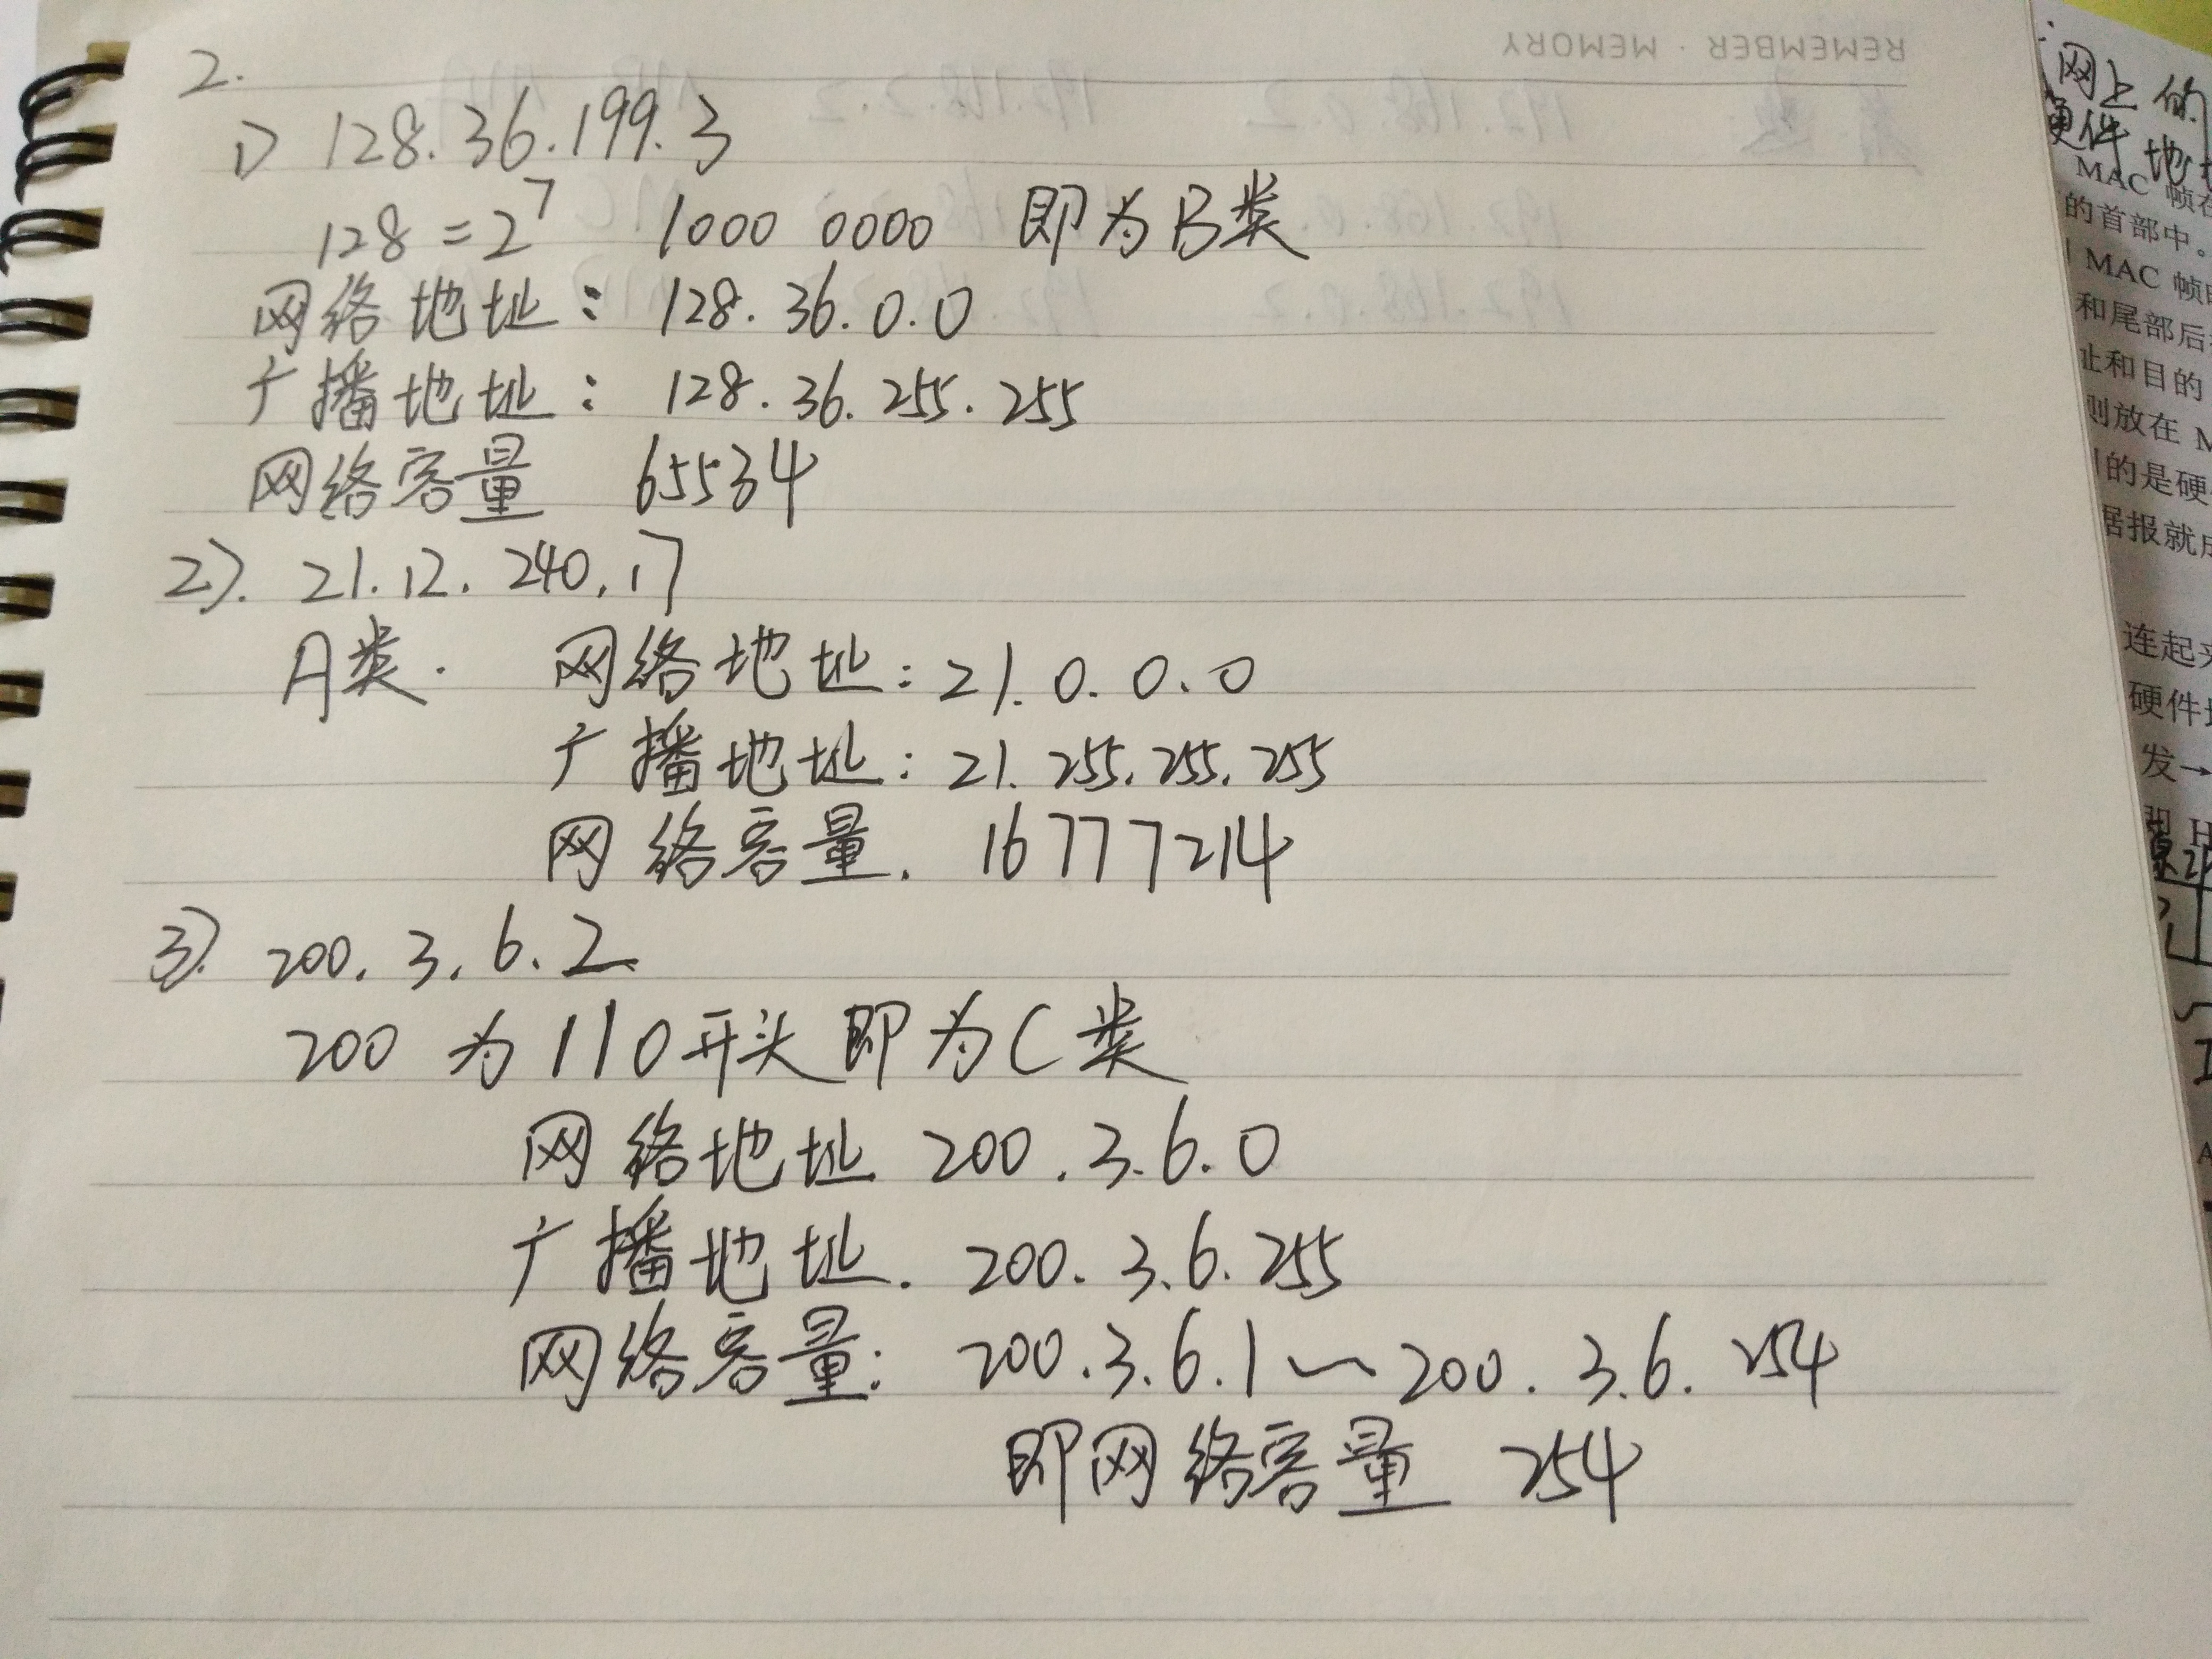 REMEMBER · MEMORY
2.
1) 128.36.199.3
128 = 2^7 1000 0000 即为B类
网络地址: 128.36.0.0
广播地址: 128.36.255.255
网络容量 65534
2). 21.12.240.17
A类. 网络地址: 21.0.0.0
广播地址: 21.255.255.255
网络容量. 16777214
3). 200.3.6.2
200 为110开头即为C类
网络地址 200.3.6.0
广播地址. 200.3.6.255
网络容量: 200.3.6.1~200.3.6.254
即网络容量 254
网上的
硬件地
MAC 帧在
的首部中。
MAC 帧
和尾部后
址和目的
则放在 M
的是硬
据报就
连起
硬件
发→